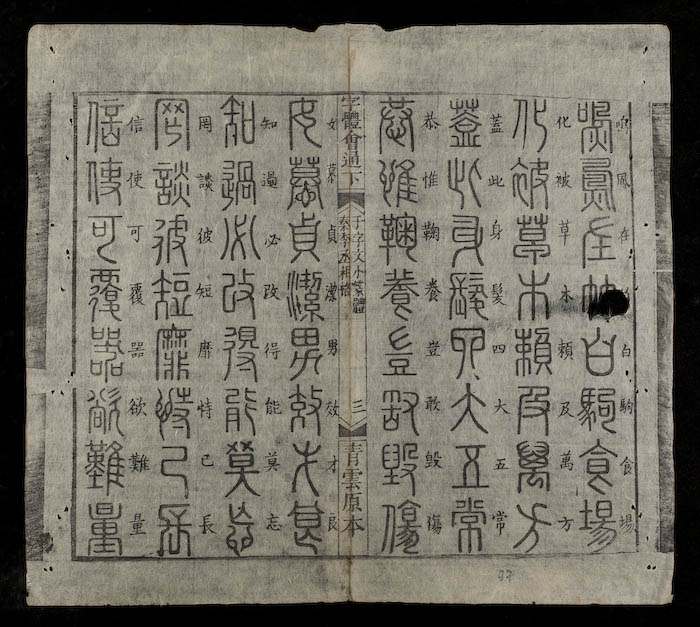 鳴鳳在白駒食場
鳴鳳在白駒食場
化被草木賴及萬方
化被草木賴及萬方
蓋此身髮四大五常
蓋此身髮四大五常
恭惟鞠養豈敢毀傷
恭惟鞠養豈敢毀傷
字體會通下
千字文小篆體
秦李丞相
三
青雲原本
女慕貞潔男效才良
女慕貞潔男效才良
知過必改得能莫忘
知過必改得能莫忘
罔談彼短靡恃己長
罔談彼短靡恃己長
信使可覆器欲難量
信使可覆器欲難量